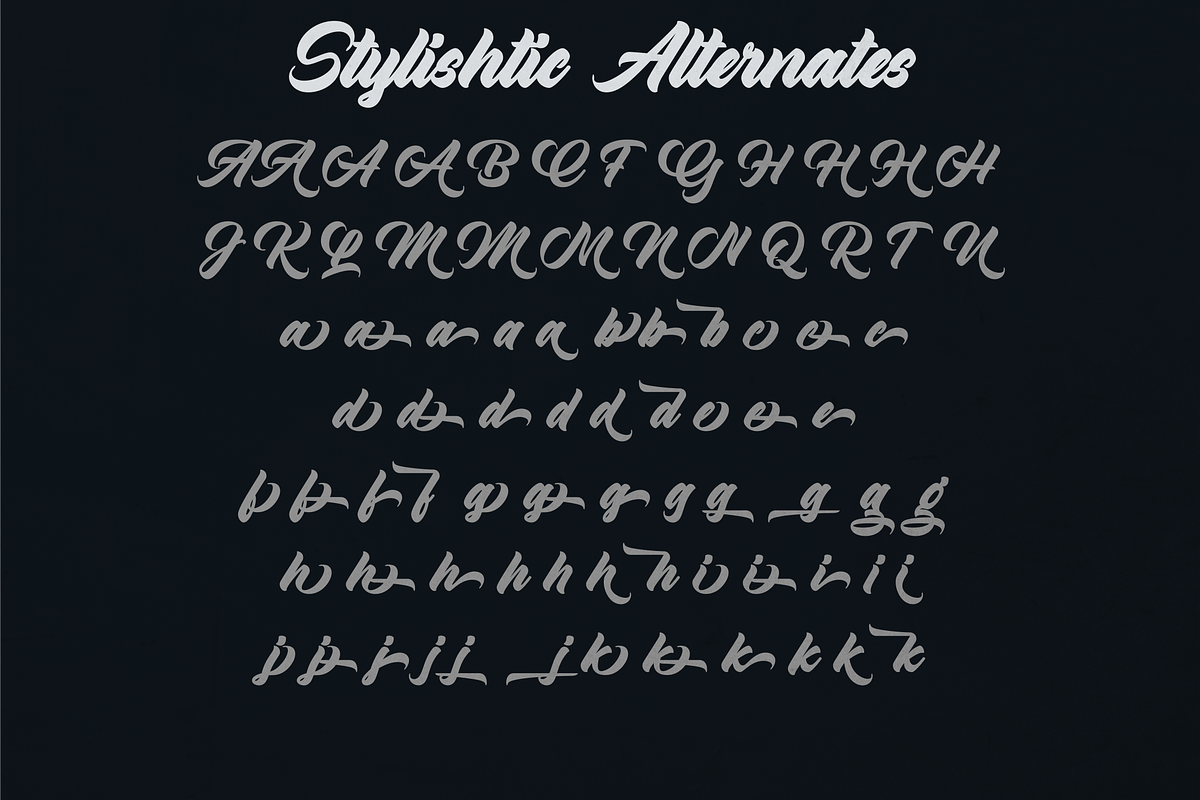 Stylishtic Alternates
A A A A B C F G H H H H
J K L M M M N N Q R T U
a a a a a b b b c c c
d d d d d d e e e
f f f f g g g g g g g g
h h h h h h h i i i i i
j j j j j j k k k k k k